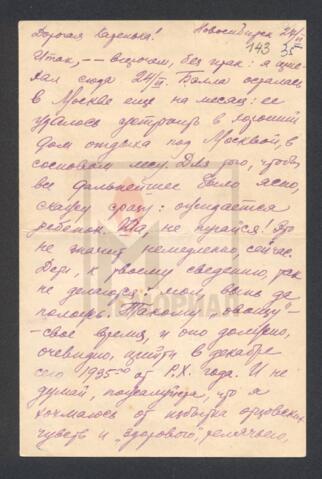 Дорогая Каренька! Новосибирск 24/II
143 35
Итак, -- впрочем, без итак: я приехал сюда 24/II. Бэлла осталась
в Москве еще на месяц: ее
удалось устроить в хороший
дом отдыха под Москвой, в
сосновом лесу. Для того, чтобы
все дальнейшее было ясно,
скажу сразу: ожидается
ребенок. Да, не пугайся! Это
не значит немедленно сейчас.
Дети, к твоему сведению, так
не делаются: мол вынь да
положь. Такому „овощу" –
– свое время, и оно должно,
очевидно, притти в декабре
сего 1935-го от Р.Х. года. И не
думай, пожалуйста, что я
от избытка отцовских
чувств и „здорового", телячьего,
МЕМОРИАЛ